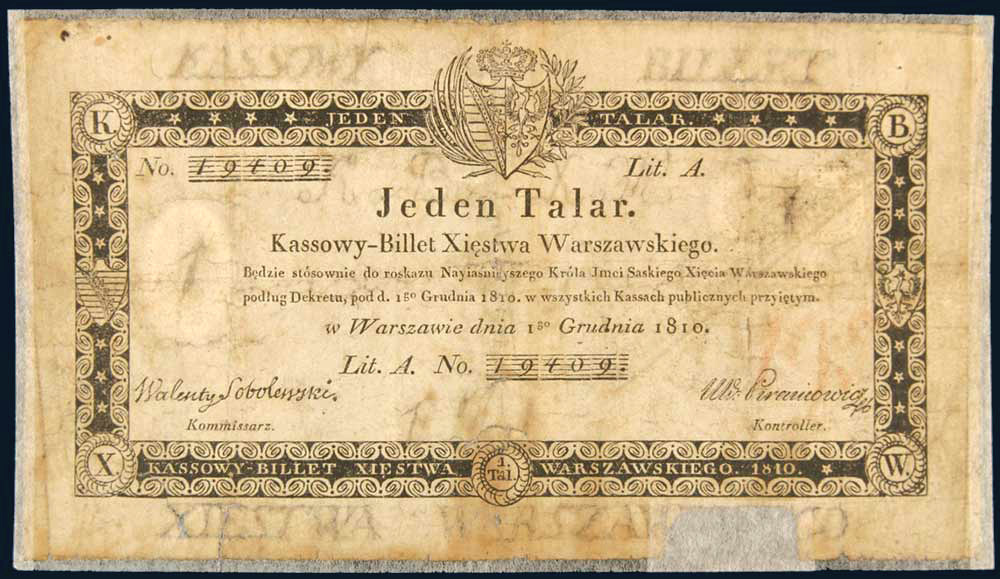 KASSOWY BILLET
K. JEDEN TALAR. B.
No. 19409. Lit. A.
Jeden Talar.
Kassowy-Billet Xięstwa Warszawskiego.
Będzie stósownie do roskazu Nayiaśnieyszego Króla Jmci Saskiego Xięcia Warszawskiego
podług Dekretu, pod d. 1go Grudnia 1810. w wszystkich Kassach publicznych przyiętym.
w Warszawie dnia 1go Grudnia 1810.
Lit. A. No. 19409.
Walenty Sobolewski.
Kommissarz. Kontroller.
X. KASSOWY-BILLET XIESTWA 1. Tal. WARSZAWSKIEGO. 1810. W.